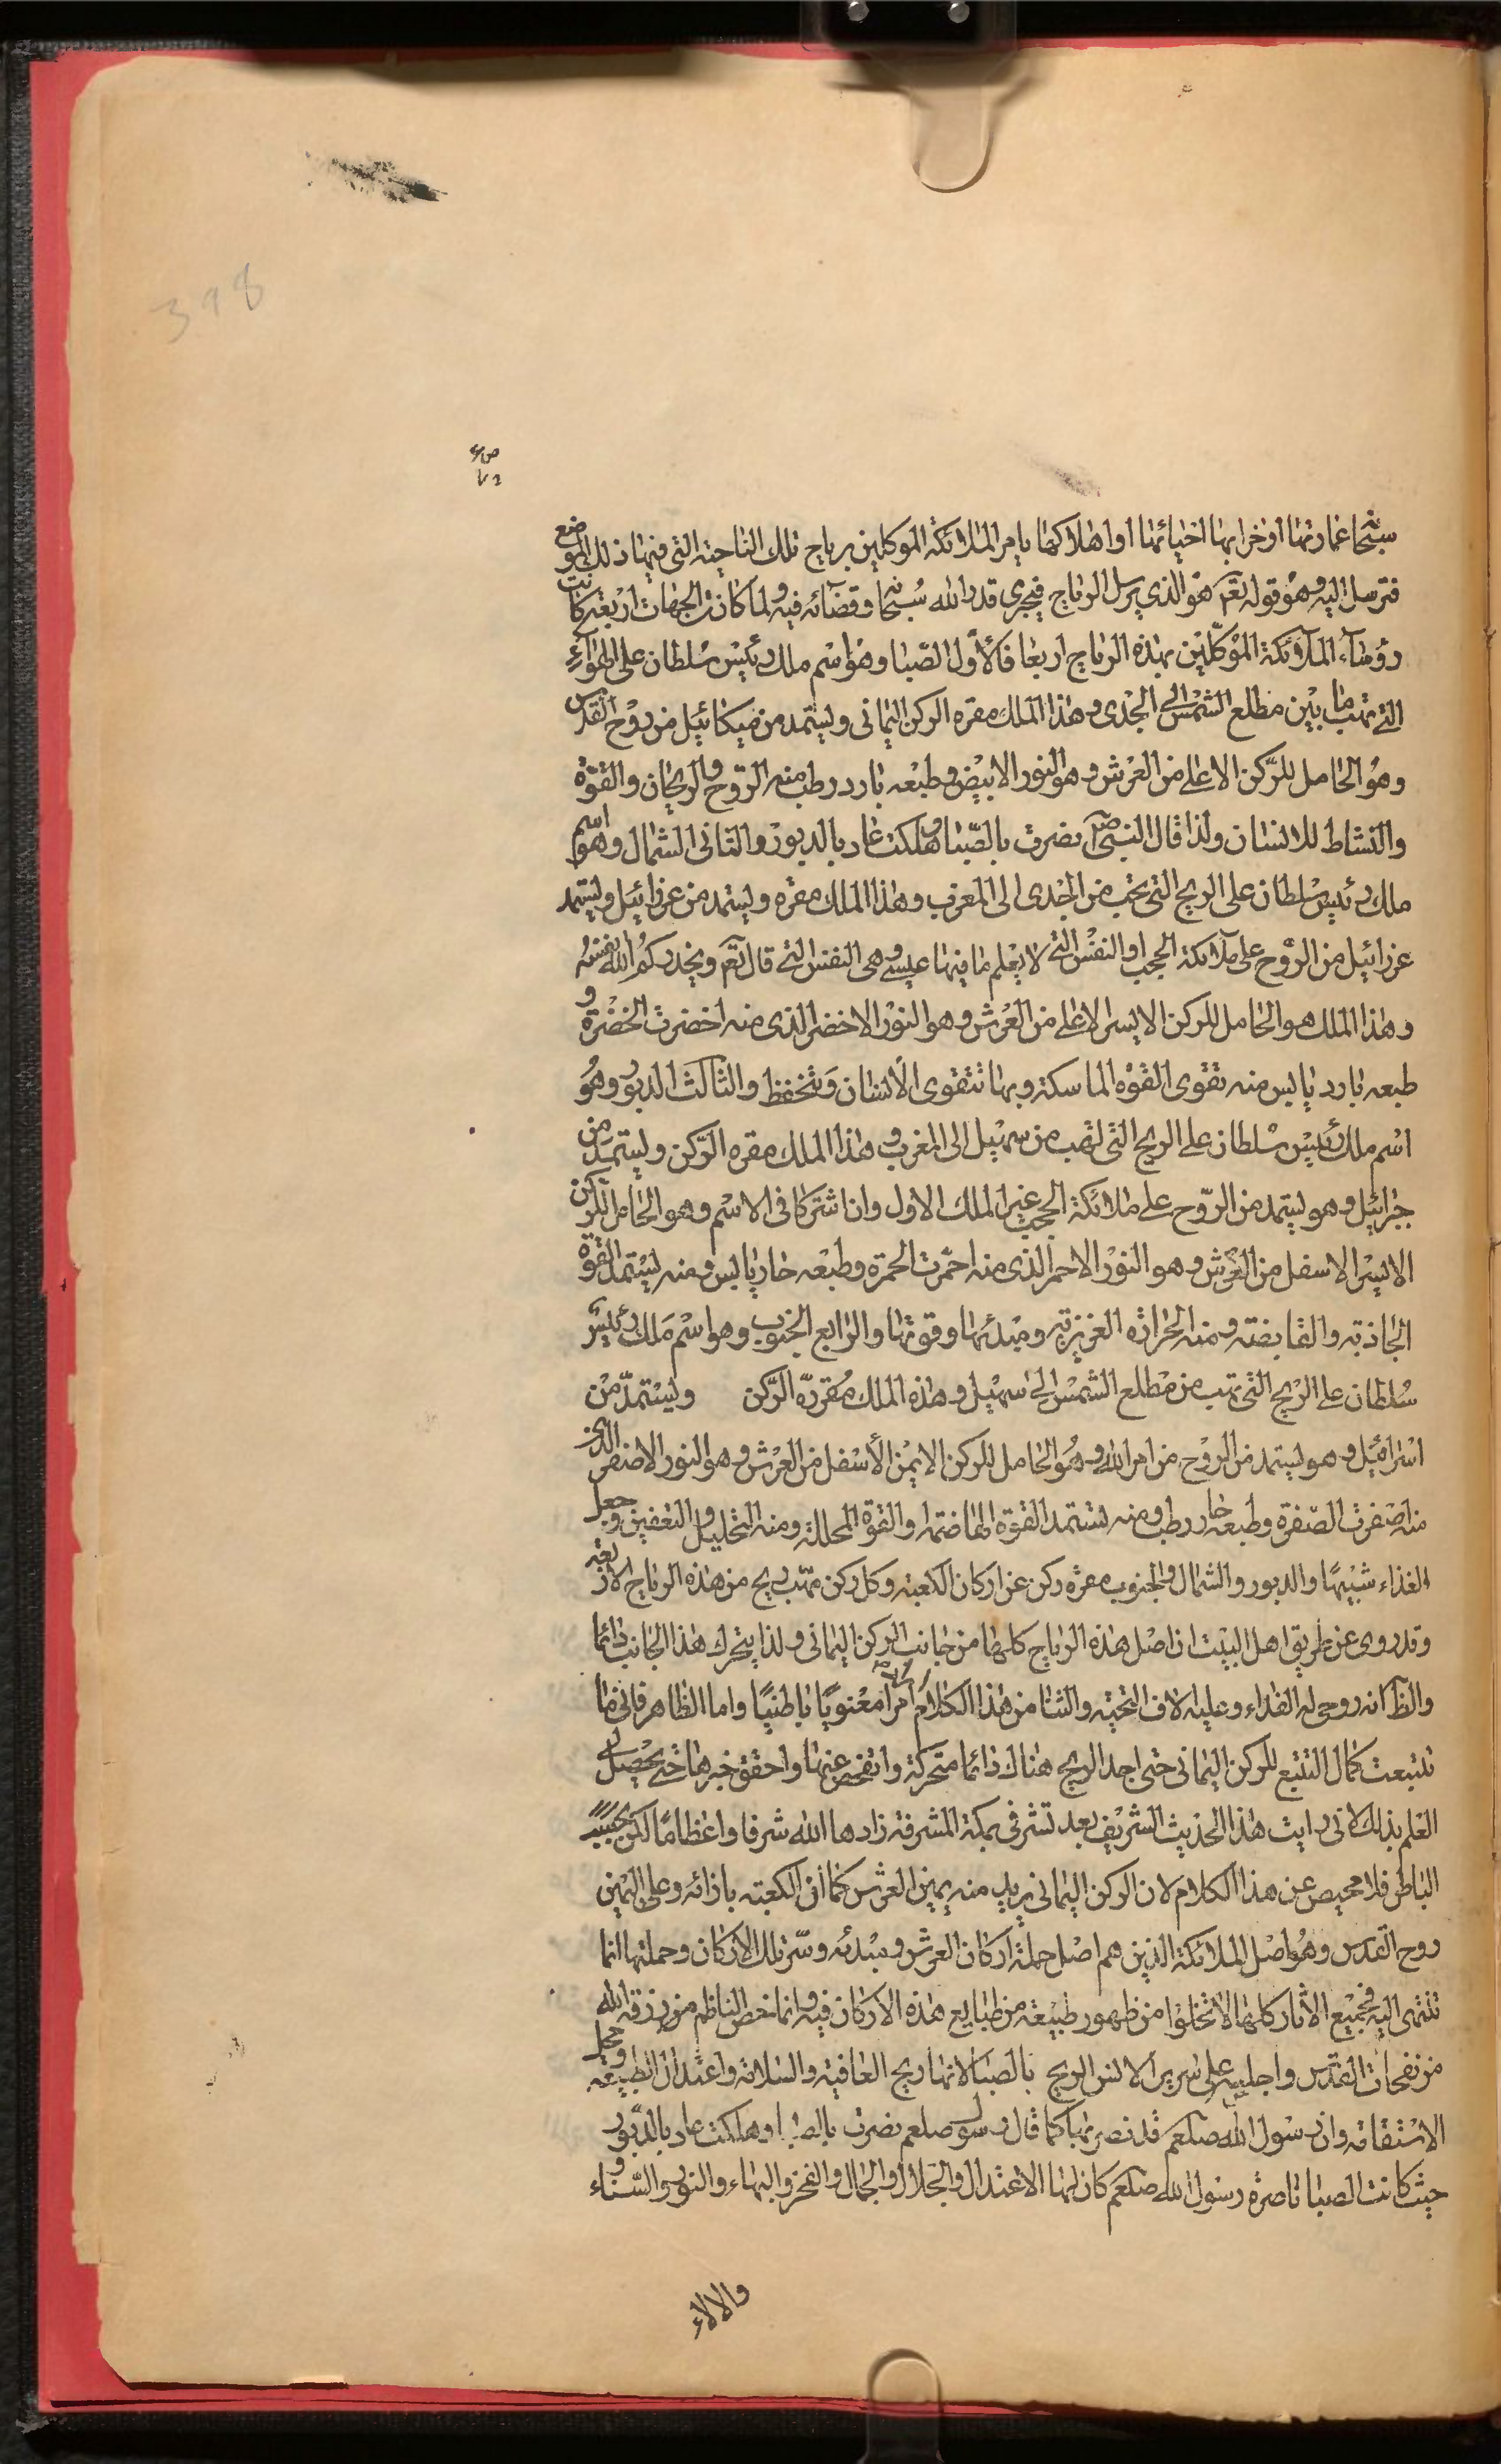 398
سبحانه عمارتها او خرابها احيائها او اهلاكها يامر الملائكة الموكلين برياح تلك الناحية التي فيها ذلك الموضع
فترسل اليه وهو قوله تعم هو الذي يرسل الرياح فيجري قدر الله سبحانه وقضائه فيه ولما كانت الجهات اربعة كانت
رؤساء الملائكة الموكلين بهذه الرياح اربعا فالاول الصبا وهو اسم ملك رئيس سلطان على الهواء
التي تهب ما بين مطلع الشمس الى الجدى وهذا الملك مقره الركن اليمانى ويستمد من ميكائيل من روح القدس
وهو الحامل للركن الاعلى من العرش وهو النور الابيض وطبعه بارد رطب منه الروح والريحان والقوة
والنشاط للانسان ولذا قال النبي ص نصرت بالصبا وهلكت عاد بالدبور والثانى الشمال وهو اسم
ملك رئيس سلطان على الريح التي تهب من الجدى الى المغرب وهذا الملك مقره ويستمد من عزرائيل ويستمد
عزرائيل من الروح على ملائكة الحجب او النفس التي لا يعلم ما فيها عيسى وهى النفس التي قال تعم ويحذركم الله نفسه
وهذا الملك هو الحامل للركن الايسر الاعلى من العرش وهو النور الاخضر الذى منه اخضرت الخضرة و
طبعه بارد يابس منه تقوى القوه الماسكة وبها تتقوى الانسان وتتحفظ والثالث الدبور وهو
اسم ملك رئيس سلطان على الريح التي تهب من سهيل الى المغرب وهذا الملك مقره الركن ويستمد من
جبرائيل وهو يستمد من الروح على ملائكة الحجب غير الملك الاول وان اشتركا فى الاسم وهو الحامل للركن
الايسر الاسفل من العرش وهو النور الاحمر الذى منه احمرت الحمرة وطبعه حار يابس ومنه يستمد القوة
الجاذبة والقابضة ومنه الحرارة الغريزية ومبدئها وقوتها والرابع الجنوب وهو اسم ملك رئيس
سلطان على الريح التي تهب من مطلع الشمس الى سهيل وهذه الملك مقره الركن ويستمد من
اسرافيل وهو يستمد من الروح من امر الله وهو الحامل للركن الايمن الاسفل من العرش وهو النور الاصفر الذى
منه اصفرت الصفرة وطبعه حار رطب ومنه تستمد القوة الهاضمة والقوة المحللة ومنه التحليل والتعفين وجعل
الغذاء شبيها والدبور والشمال والجنوب مقره ركن عن اركان الكعبة وكل ركن مهب ريح من هذه الرياح الاربعة
وقد روى عن طريق اهل البيت ان اصل هذه الرياح كلها من جانب الركن اليمانى ولذا يتحرك هذا الجانب دائما
والظ انه روحى له الفداء وعليه الاف التحية والثنا من هذا الكلام امرا معنويا باطنيا واما الظاهر فانى ما
تتبعت كمال التتبع للركن اليمانى حتى اجد الريح هناك دائما متحركة واتفحص عنها واحقق خبرها حتى يحصل لى
العلم بذلك لانى رايت هذا الحديث الشريف بعد تشرفى بمكة المشرفة زادها الله شرفا واعظاما لكن بحسب
الباطن فلا محيص عن هذا الكلام لان الركن اليمانى يريد منه يمين العرش كما ان الكعبة بازائه وعلى اليمين
روح القدس وهو اصل الملائكة الذين هم اصل حملة اركان العرش ومبدئه وسر تلك الاركان وحملتها انما
تنتمى اليه فجميع الاثار كلها لا تخلوا من ظهور طبيعة من طبايع هذه الاركان فيه وانما خص الناظم من رزقه الله
من نفحات القدس واجلسه على سرير الانس الريح بالصبا لانها ريح العافية والسلامة واعتدال الطبيعة وجعل
الاستقامة وان رسول الله صلعم قد نصر بها كما قال رسول صلعم نصرت بالصبا وهلكت عاد بالدبور
حيث كانت الصبا ناصرة رسول الله صلعم كان لها الاعتدال والجلال والجمال والفخر والبهاء والنور والسناء و
والالاء